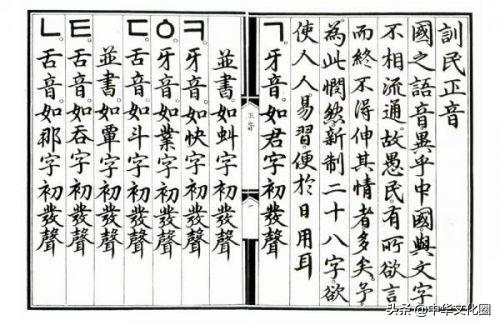 訓民正音
國之語音。異乎中國。與文字
不相流通。故愚民有所欲言
而終不得伸其情者多矣。予
為此憫然。新制二十八字。欲
使人人易習。便於日用耳
ㄱ牙音。如君字初發聲
並書。如虯字初發聲
ㅋ牙音。如快字初發聲
ㆁ牙音。如業字初發聲
ㄷ舌音。如斗字初發聲
並書。如覃字初發聲
ㅌ舌音。如呑字初發聲
ㄴ舌音。如那字初發聲
头条 @中华文化圈